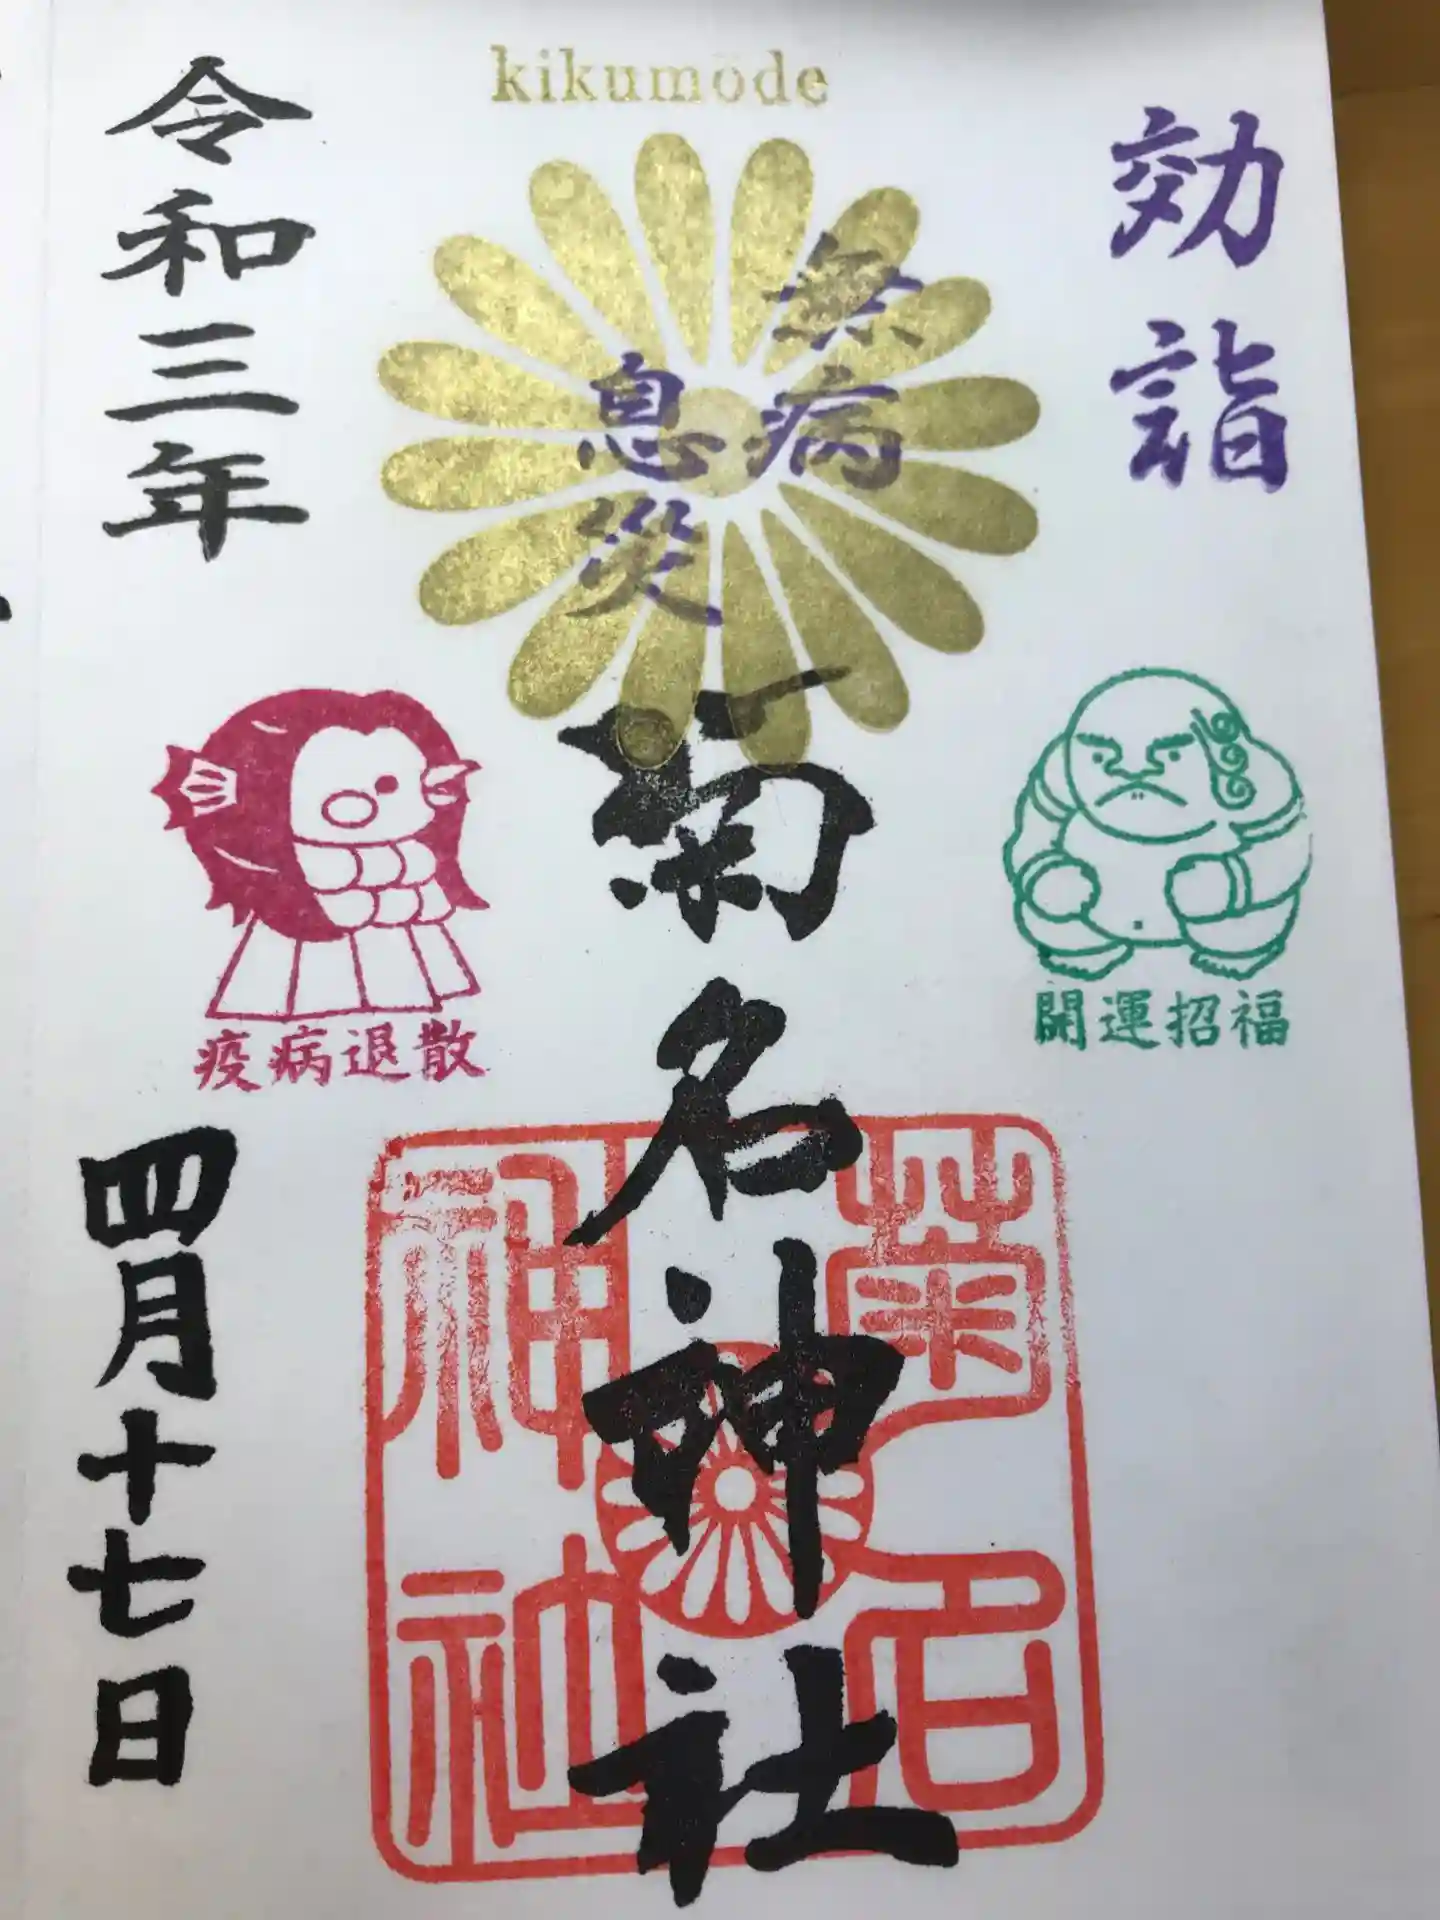 kikumōde
効詣
無病
息災
開運招福
菊名神社
菊名
神社
令和三年
疫病退散
四月十七日